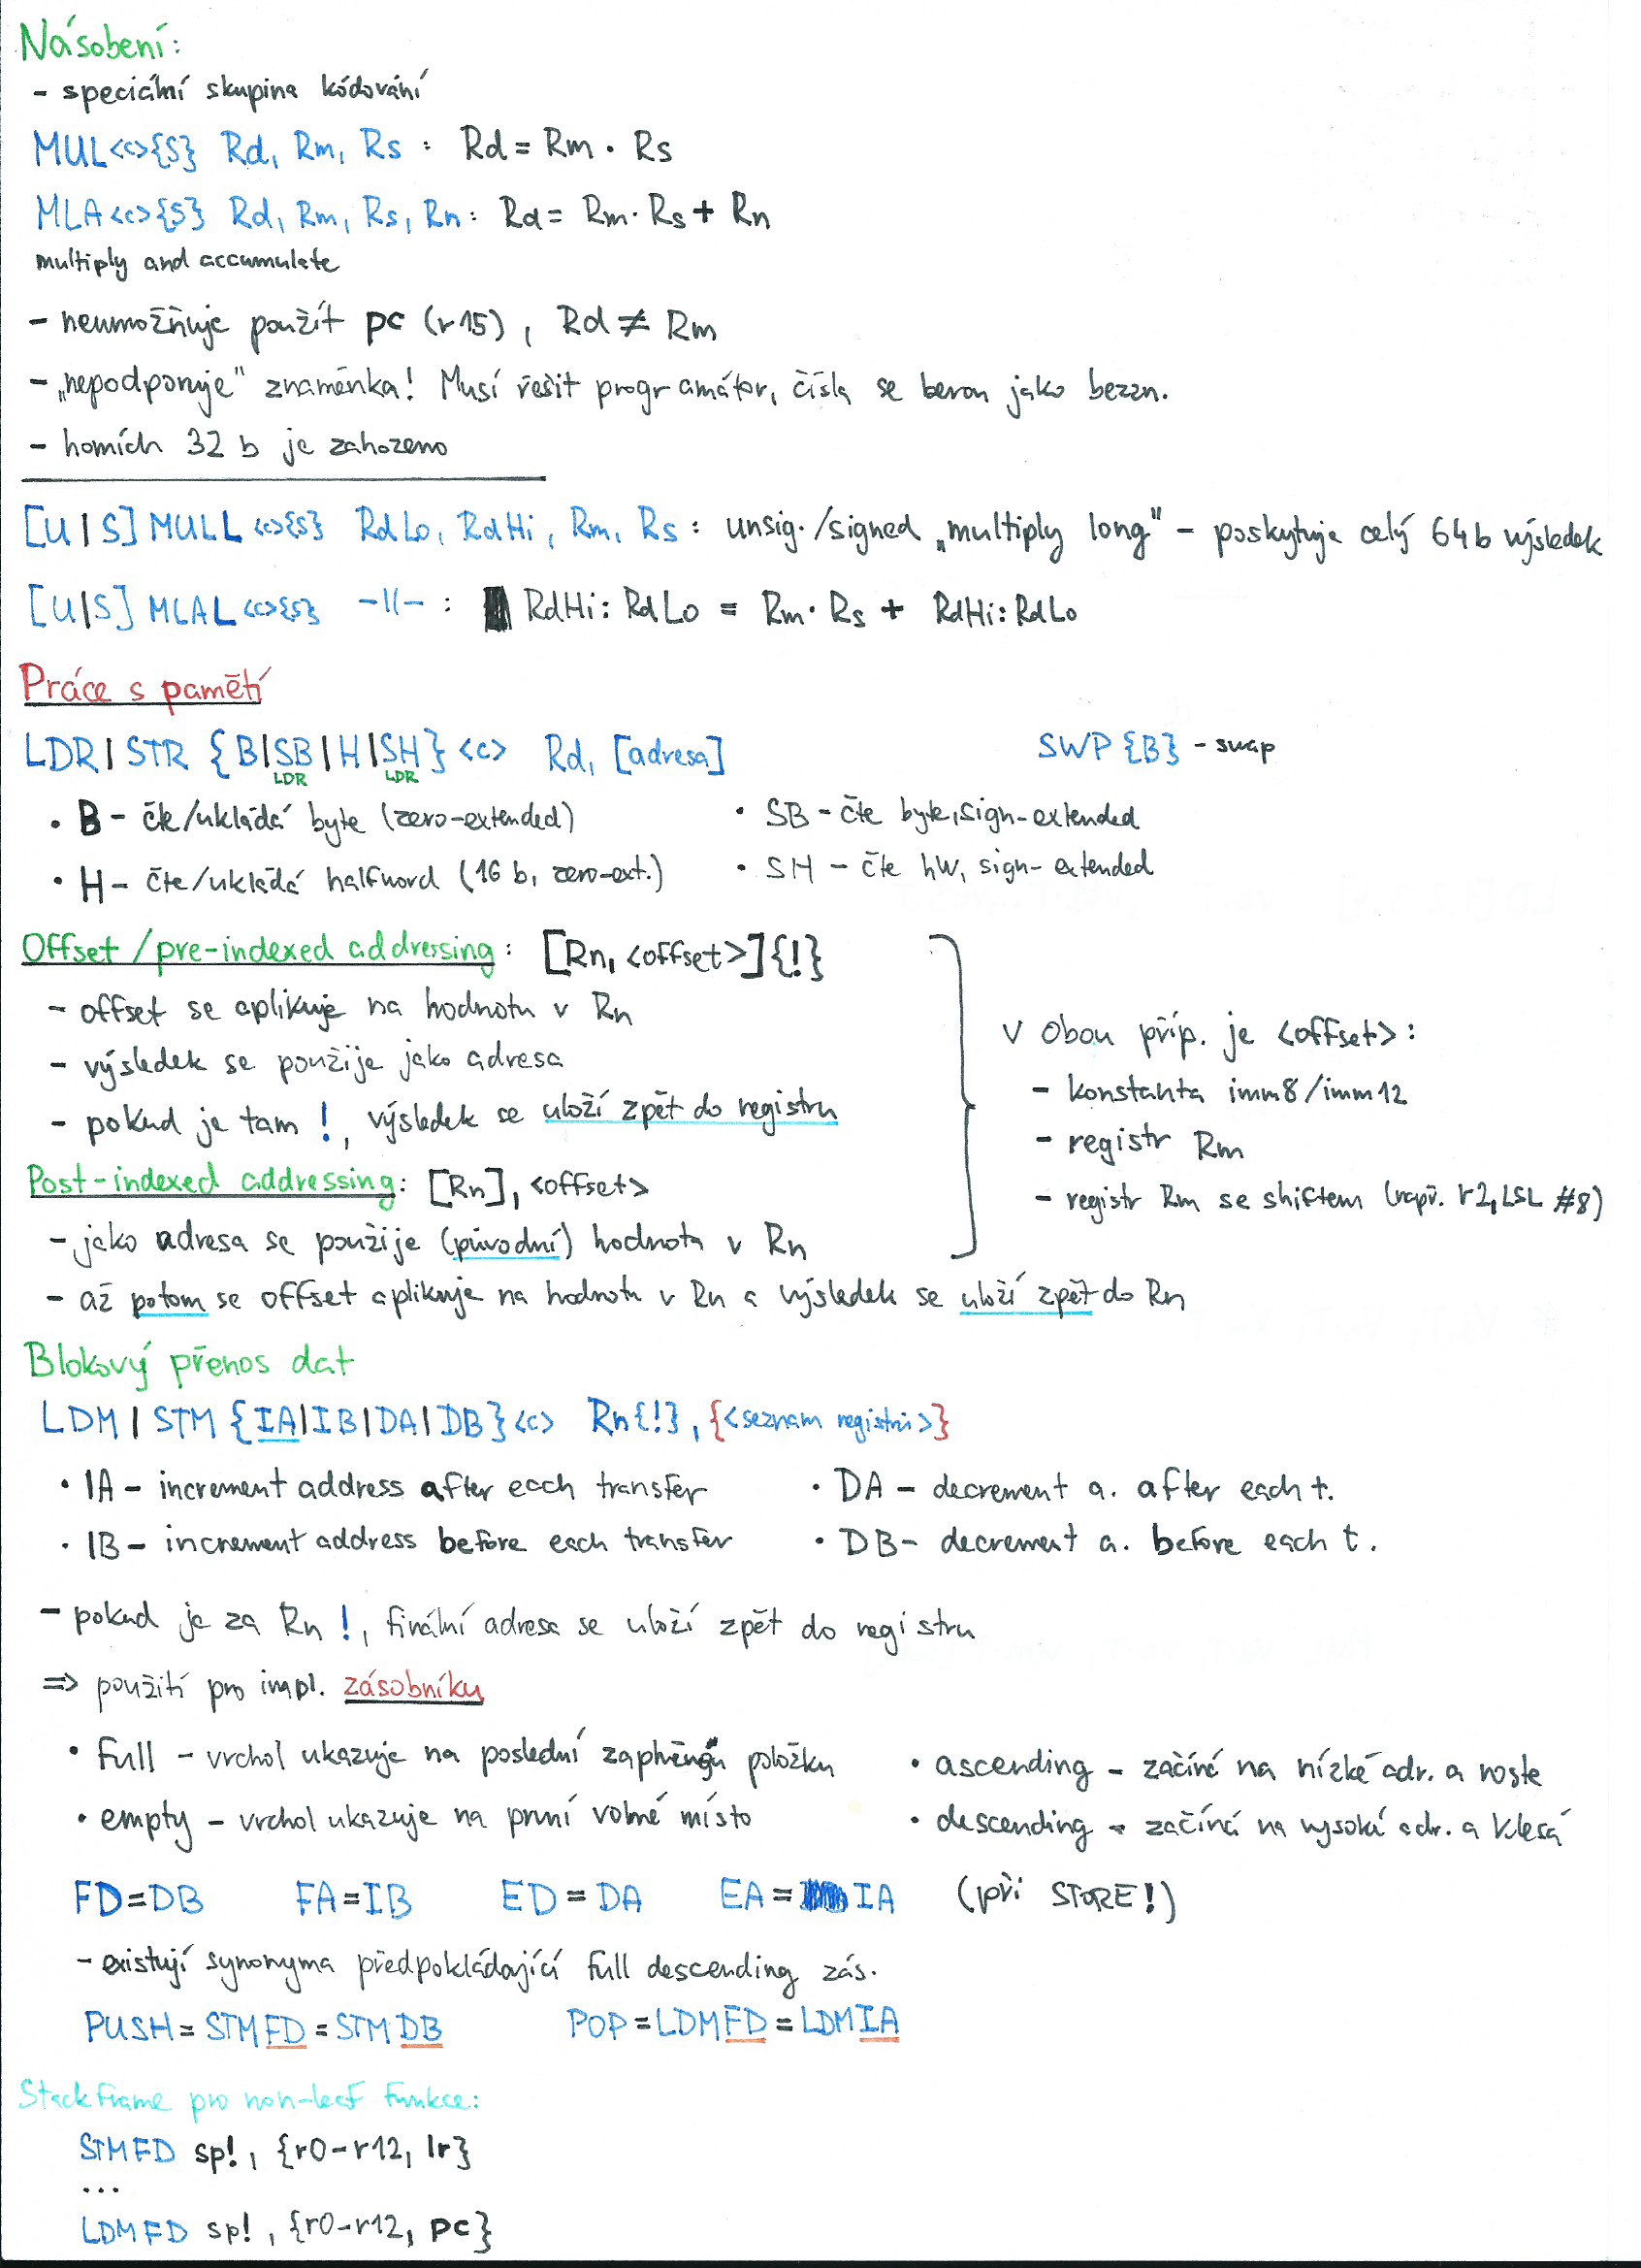 Násobení:
- speciální skupina kódování
MUL<c>{S} Rd, Rm, Rs : Rd = Rm · Rs
MLA<c>{S} Rd, Rm, Rs, Rn : Rd = Rm · Rs + Rn
multiply and accumulate
- neumožňuje použít pc (r15), Rd ≠ Rm
- „nepodporuje" znaménka! Musí řešit programátor, čísla se berou jako bezzn.
- horních 32 b je zahozeno
[U|S] MULL <c>{S} RdLo, RdHi, Rm, Rs : unsig./signed „multiply long" - poskytuje celý 64b výsledek
[U|S] MLAL <c>{S} -||- : RdHi:RdLo = Rm · Rs + RdHi:RdLo
Práce s pamětí
LDR|STR {B|SB|H|SH} <c> Rd, [adresa] SWP{B} - swap
LDR LDR
• B - čte/ukládá byte (zero-extended) • SB - čte byte, sign-extended
• H - čte/ukládá halfword (16 b, zero-ext.) • SH - čte hW, sign-extended
Offset / pre-indexed addressing: [Rn, <offset>]{!}
- offset se aplikuje na hodnotu v Rn
- výsledek se použije jako adresa
- pokud je tam !, výsledek se uloží zpět do registru
Post-indexed addressing: [Rn], <offset>
- jako adresa se použije (původní) hodnota v Rn
- až potom se offset aplikuje na hodnotu v Rn a výsledek se uloží zpět do Rn
V obou příp. je <offset>:
- konstanta imm8/imm12
- registr Rm
- registr Rm se shiftem (např. r2, LSL #8)
Blokový přenos dat
LDM | STM {IA|IB|DA|DB}<c> Rn{!}, {<seznam registrů>}
• IA - increment address after each transfer • DA - decrement a. after each t.
• IB - increment address before each transfer • DB - decrement a. before each t.
- pokud je za Rn !, finální adresa se uloží zpět do registru
=> použití pro impl. zásobníku
• full - vrchol ukazuje na poslední zaplněnou položku • ascending - začíná na nízké adr. a roste
• empty - vrchol ukazuje na první volné místo • descending - začíná na vysoké adr. a klesá
FD=DB FA=IB ED=DA EA=IA (při STORE!)
- existují synonyma předpokládající full descending zás.
PUSH = STMFD = STMDB POP = LDMFD = LDMIA
Stack frame pro non-leaf funkce:
STMFD sp!, {r0-r12, lr}
...
LDMFD sp!, {r0-r12, pc}